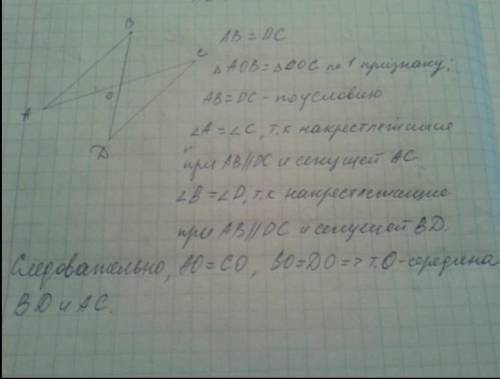 B
C
A
O
D
AB = DC
△AOB = △DOC по 1 признаку:
AB = DC - по условию
∠A = ∠C, т.к накрестлежащие
при AB || DC и секущей AC.
∠B = ∠D, т.к накрестлежащие
при AB || DC и секущей BD.
Следовательно, AO = CO, BO = DO => т.O - середина
BD и AC.